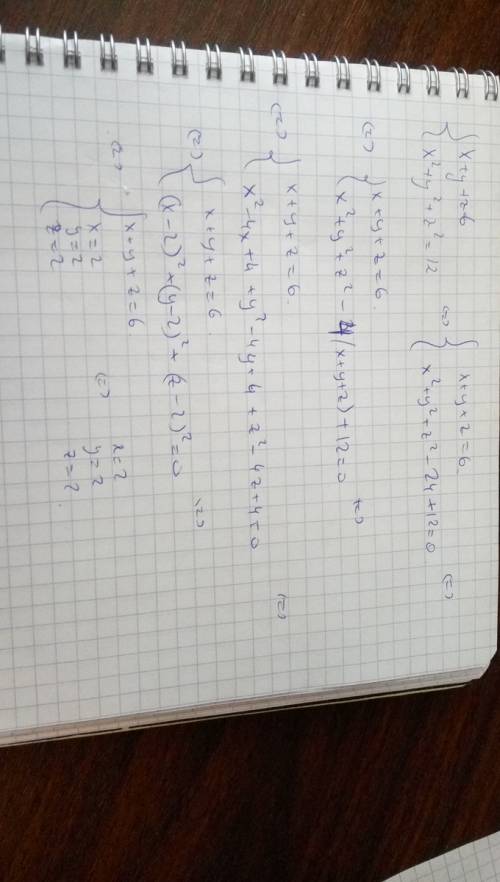 { x+y+z=6 <=> { x+y+z=6.
x²+y²+z²=12 x²+y²+z²-24+12=0 <=>
<=> { x+y+z=6.
x²+y²+z²-4(x+y+z)+12=0 <=>
<=> { x+y+z=6.
x²-4x+4+y²-4y+4+z²-4z+4=0 <=>
<=> { x+y+z=6.
(x-2)²+(y-2)²+(z-2)²=0 <=>
<=> { x+y+z=6.
x=2 <=> x=2
y=2 y=2
z=2 z=2.